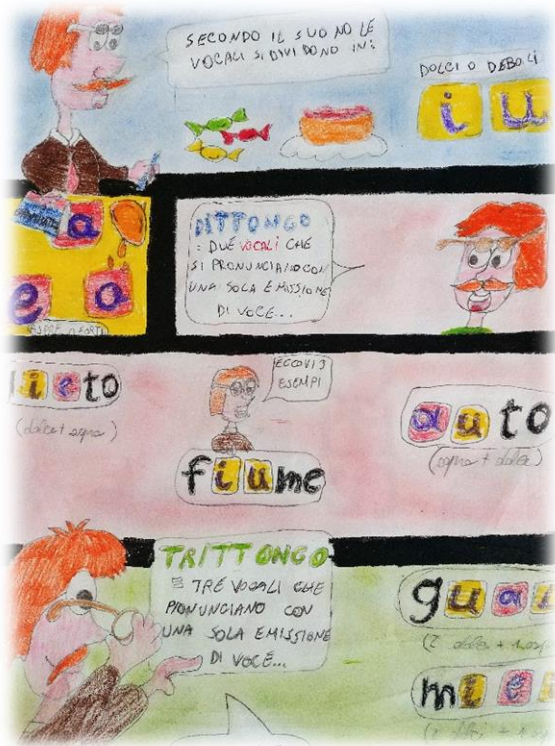 SECONDO IL SUONO LE
VOCALI SI DIVIDONO IN:
DOLCI O DEBOLI
i u
a
e o
DITTONGO
: DUE VOCALI CHE
SI PRONUNCIANO CON
UNA SOLA EMISSIONE
DI VOCE...
lieto
(dolce + aspra)
ECCOVI 3
ESEMPI
fiume
auto
(aspra + dolce)
TRITTONGO
= TRE VOCALI CHE
PRONUNCIANO CON
UNA SOLA EMISSIONE
DI VOCE...
guai
(2 dolci +
mie